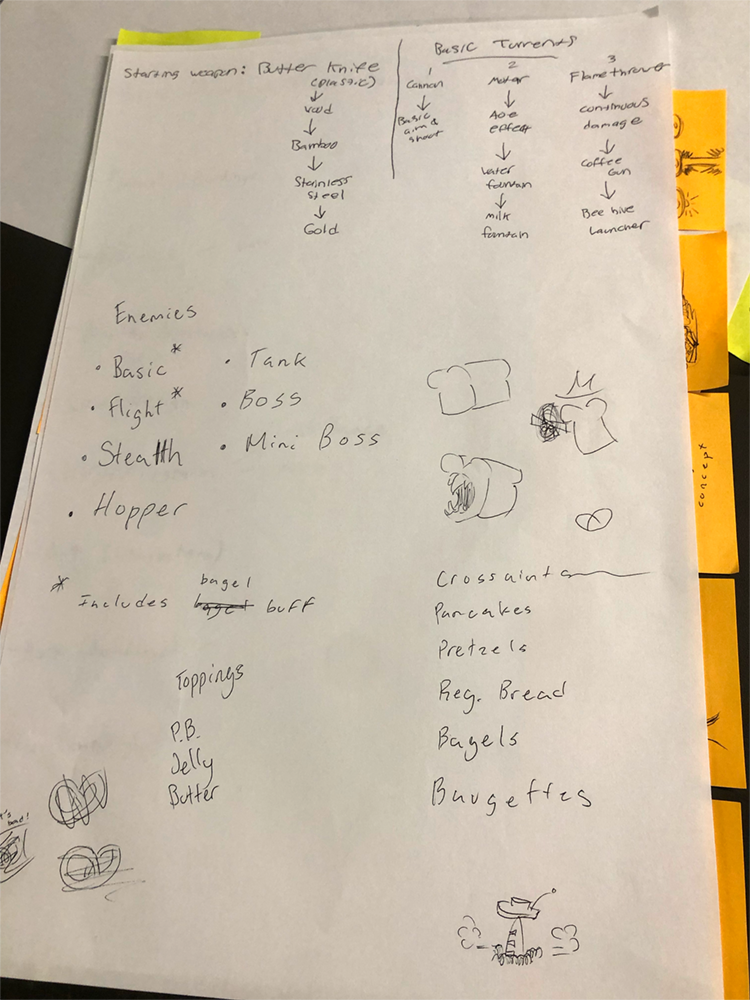 Starting weapon: Butter Knife
(plastic)
wood
Bamboo
Stainless
Steel
Gold
Basic Turrents
1
Cannon
Basic
aim &
shoot
2
Motar
Aoe
effect
water
fountain
milk
fountain
3
Flamethrower
continuous
damage
Coffee
Gun
Bee hive
Launcher
Enemies
• Basic *
• Flight *
• Stealth
• Hopper
• Tank
• Boss
• Mini Boss
M
* Includes bagel buff
Toppings
P.B.
Jelly
Butter
Crossaints
Pancakes
Pretzels
Reg. Bread
Bagels
Baugettes
concept